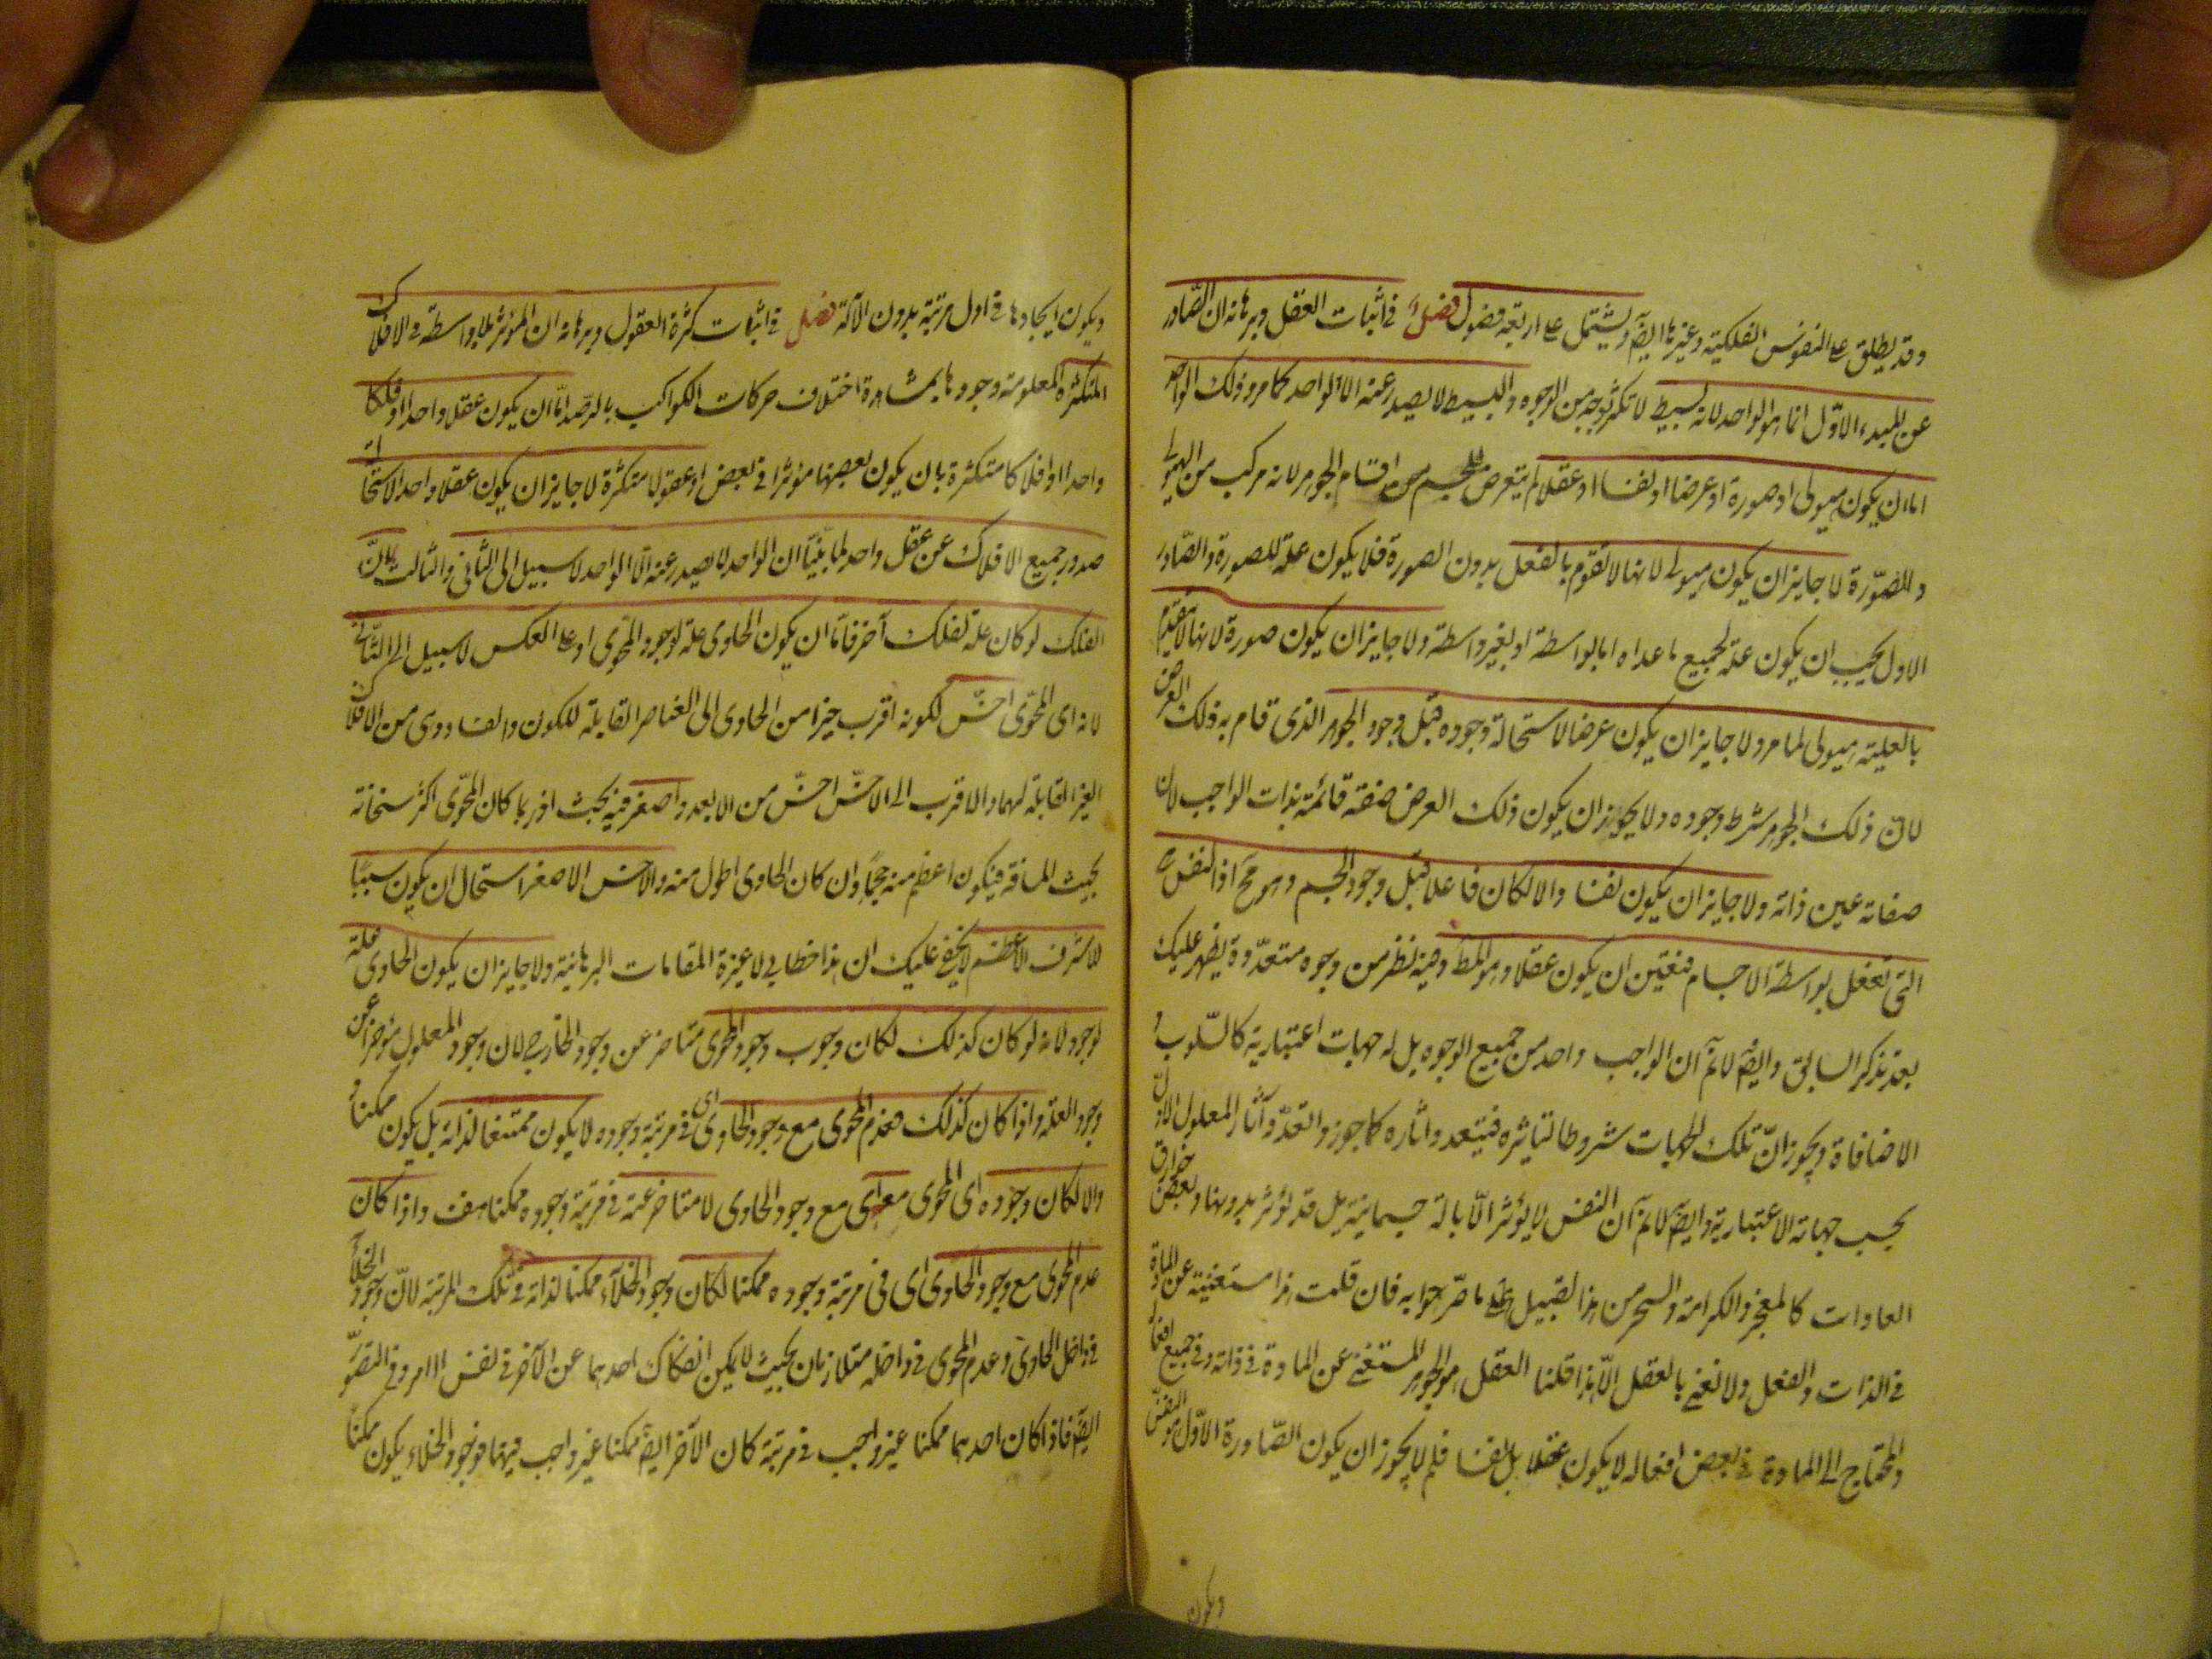 وقد يطلق على النفوس الفلكية وغيرها ايضا ويشتمل على اربعة فصول فصل في اثبات العقل وبرهانه ان الصادر
عن المبدء الاول انما هو الواحد لانه بسيط لا تكثر بوجه من الوجوه والبسيط لا يصدر عنه الا الواحد كما مر وذلك الواحد
اما ان يكون هيولى او صورة او عرضا او نفسا او عقلا لم يتعرض للجسم من اقسام الجوهر لانه مركب من الهيولى
والصورة لا جايز ان يكون هيولى لانها لا تقوم بالفعل بدون الصورة فلا يكون علة للصورة والصادر
الاول يجب ان يكون علة لجميع ما عداه اما بالواسطة او بغير واسطة ولا جايز ان يكون صورة لانها لا تتقدم
بالعلية هيولى لما مر ولا جايز ان يكون عرضا لاستحالة وجوده قبل وجود الجوهر الذى قام به ذلك العرض
لان ذلك الجوهر شرط وجوده ولا يجوز ان يكون ذلك العرض صفة قائمة بذات الواجب لان
صفاته عين ذاته ولا جايز ان يكون نفسا والا لكان فاعلا قبل وجود الجسم وهو مح اذ النفس هى
التى تفعل بواسطة الاجسام فتعين ان يكون عقلا وهو المط وفيه نظر من وجوه متعددة يظهر عليك
بعد تذكر السابق وايضا لانم ان الواجب واحد من جميع الوجوه بل له جهات اعتبارية كالسلوب و
الاضافات ويجوز ان تلك الجهات شروطا لتاثيره فيتعدد اثاره كما جوزوا تعدد آثار المعلول الاول
بحسب جهاته الاعتبارية وايضا لانم ان النفس لا يؤثر الا بآلة جسمانية بل قد تؤثر بدونها وبعض خوارق
العادات كالمعجز والكرامة والسحر من هذا القبيل على ما صرحوا به فان قلت هذا مستغنية عن المادة
في الذات والفعل ولا نعني بالعقل الا هذا قلنا العقل هو الجوهر المستغنى عن المادة في ذاته وفي جميع افعاله
والمحتاج الى المادة في بعض افعاله لا يكون عقلا بل نفسا فلم لا يجوز ان يكون الصادرة الاول هو النفس
ويكون
ويكون ايجادها في اول مرتبة بدون الآلة فصل في اثبات كثرة العقول وبرهانه ان المؤثر بلا واسطة في الافلاك
المتكثرة المعلومة وجودها بمشاهدة اختلاف حركات الكواكب بالرصد اما ان يكون عقلا واحدا او فلكا
واحدا او افلاكا متكثرة بان يكون بعضها مؤثرا في بعض او عقولا متكثرة لا جايز ان يكون عقلا واحدا لاستحالة
صدور جميع الافلاك عن عقل واحد لما بينا ان الواحد لا يصدر عنه الا الواحد لا سبيل الى الثاني والثالث لان
الفلك لو كان علة لفلك آخر فاما ان يكون الحاوى علة لوجود المحوى او على العكس لا سبيل الى الثاني
لانه اى المحوى اخس لكونه اقرب حيزا من الحاوى الى العناصر القابلة للكون والفساد ودى من الافلاك
الغير القابلة لهما والاقرب الى الاخس اخس من الابعد واصغر فيه بحث اذ ربما كان المحوى اكثر سخانة
بحيث المسافة فيكون اعظم منه حجما وان كان الحاوى اطول منه والاخس الاصغر استحال ان يكون سببا
للاشرف الاعظم لا يخفى عليك ان هذا خطابى لا عبرة المقامات البرهانية ولا جايز ان يكون الحاوى علة
لوجوده لانه لو كان كذلك لكان وجوب وجود المحوى متاخرا عن وجود الحاوى لان وجود المعلول مؤخر عن
وجود العلة واذا كان كذلك فعدم المحوى مع وجود الحاوى اى في مرتبة وجوده لا يكون ممتنعا لذاته بل يكون ممكنا و
والا لكان وجوده اى المحوى معه اى مع وجود الحاوى لا متاخر عنه في مرتبة وجوده ممكنا هف واذا كان
عدم المحوى مع وجود الحاوى اى في مرتبة وجوده ممكنا لكان وجود الخلاء ممكنا لذاته في تلك المرتبة لان وجود الخلاء
في داخل الحاوى وعدم المحوى في داخله متلازمان بحيث لا يمكن انفكاك احدهما عن الآخر في نفس الامر وفي التصور
ايضا فاذا كان احدهما ممكنا غير واجب في مرتبة كان الآخر ايضا ممكنا غير واجب فيها فوجود الخلاء يكون ممكنا